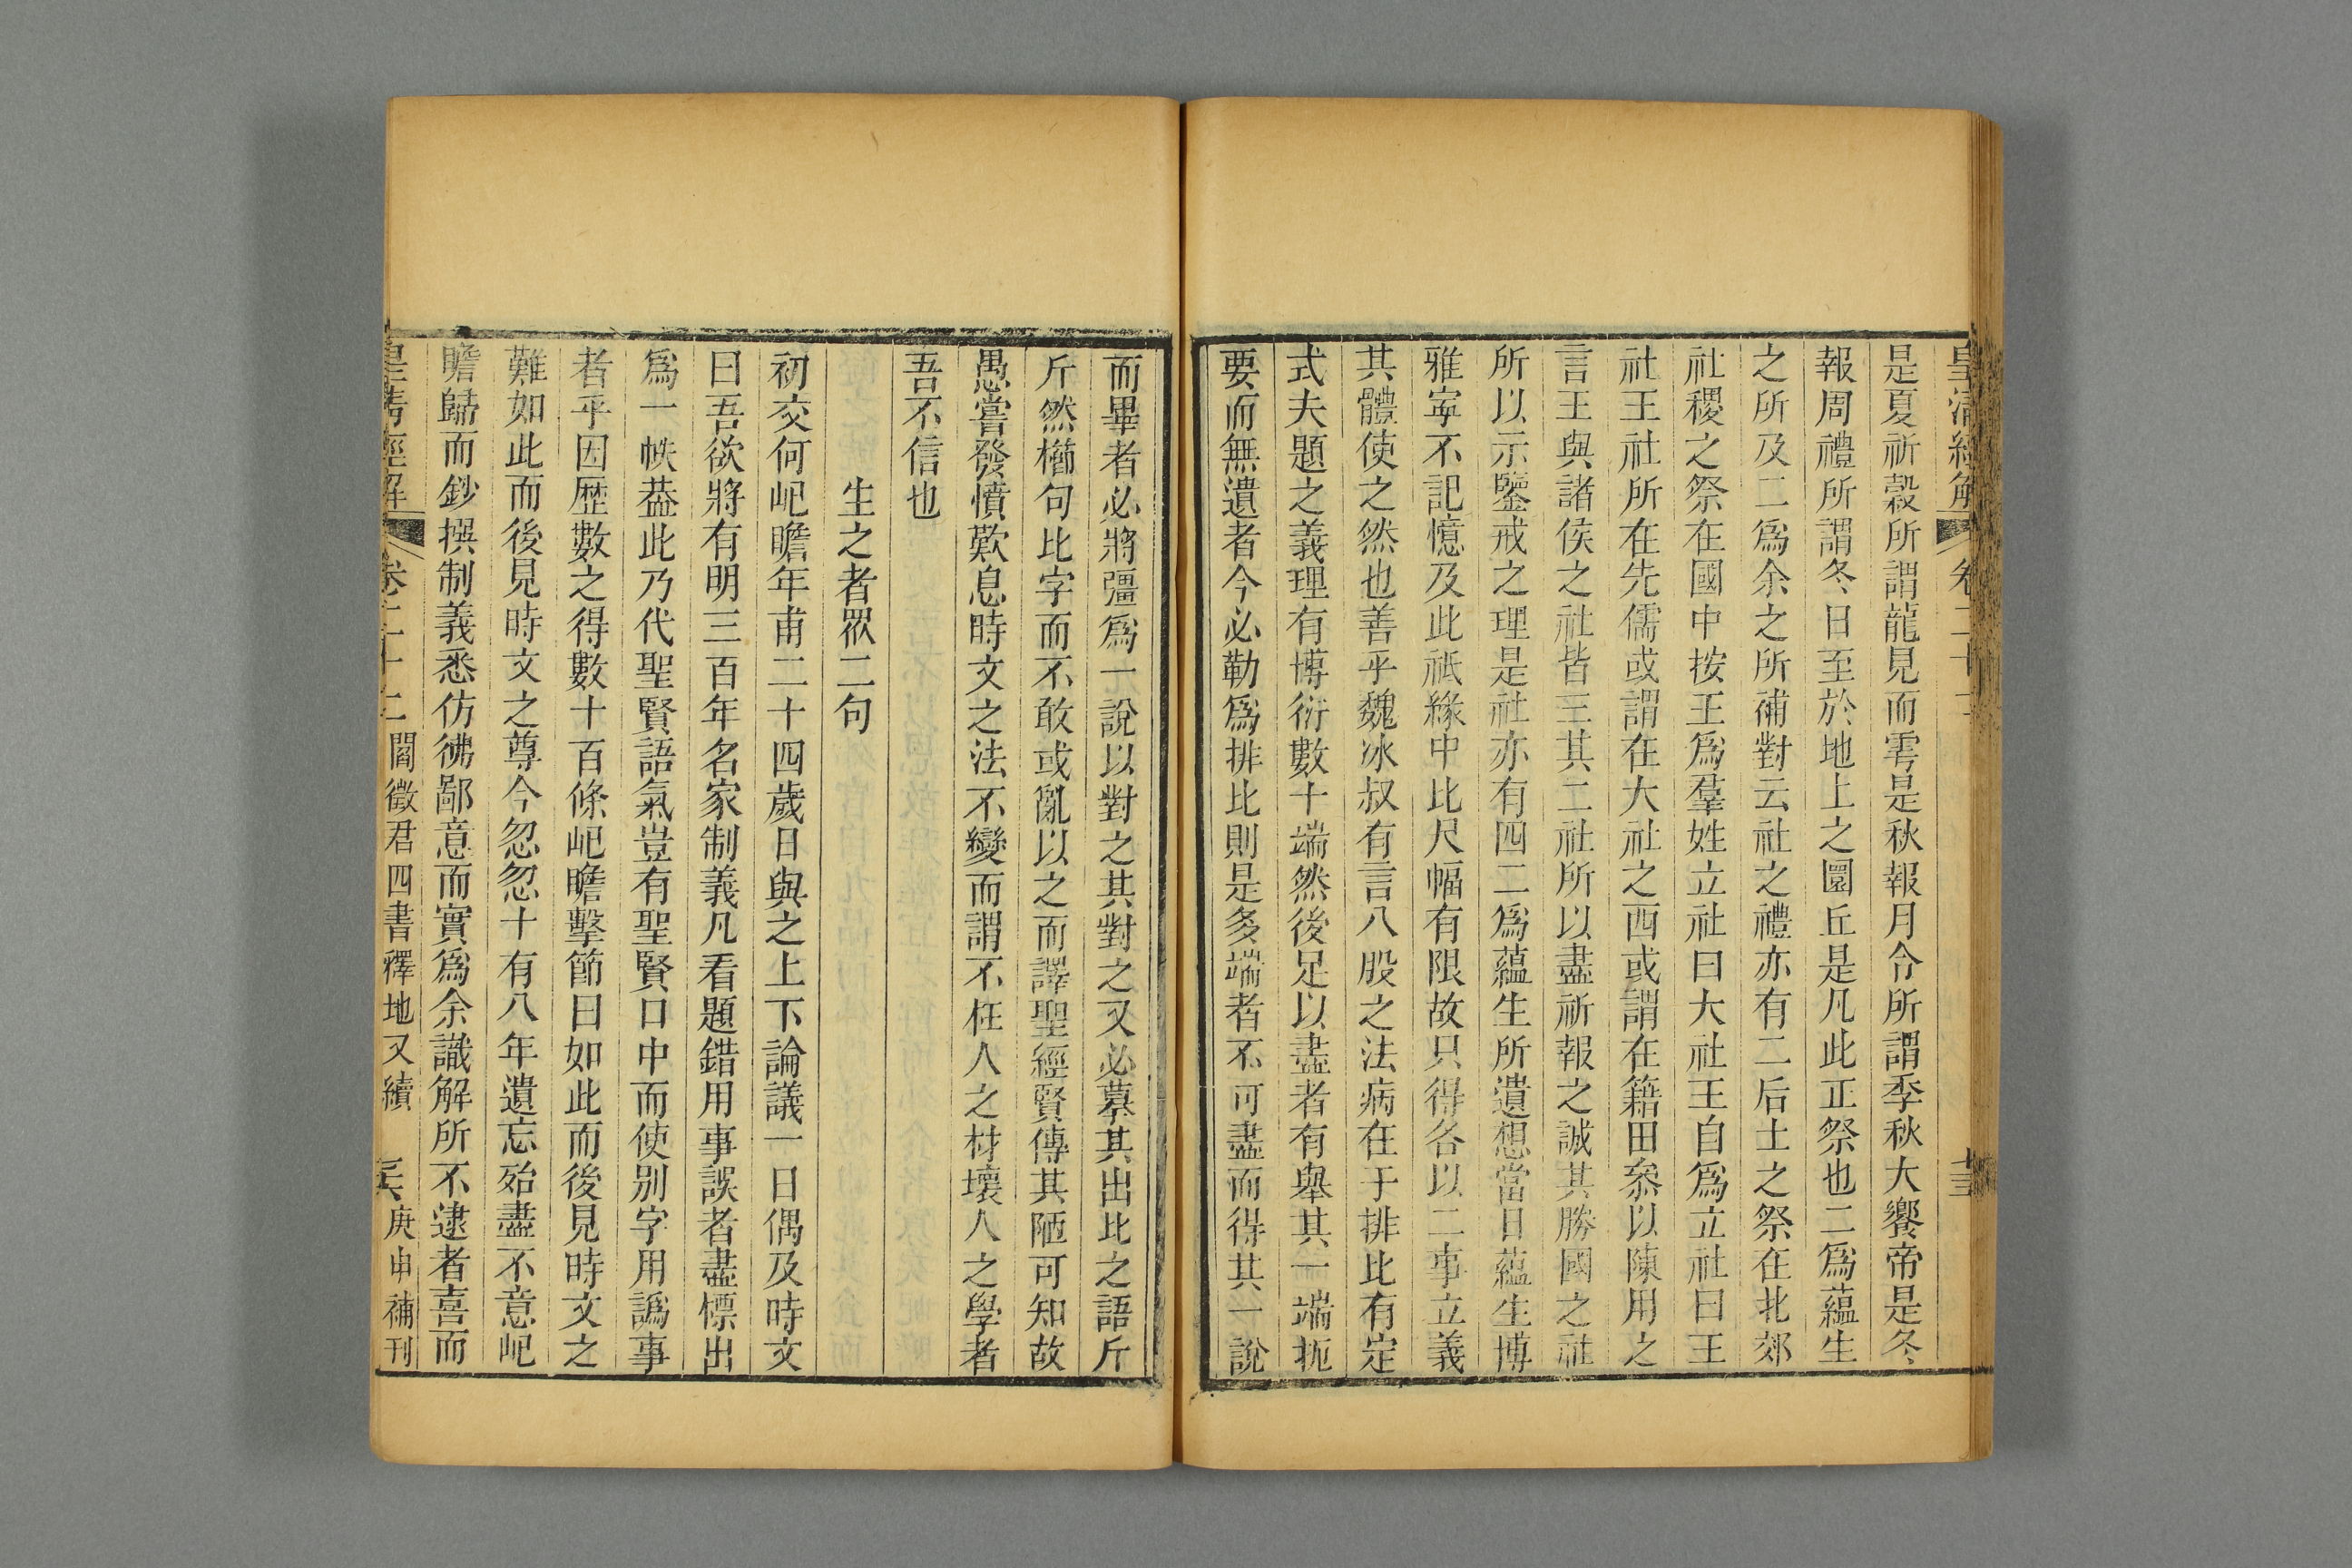 皇清經解 卷二十二 十三
是夏祈穀所謂龍見而雩是秋報月令所謂季秋大饗帝是冬
報周禮所謂冬日至於地上之圜丘是凡此正祭也二爲蘊生
之所及二爲余之所補對云社之禮亦有二后土之祭在北郊
社稷之祭在國中按王爲羣姓立社曰大社王自爲立社曰王
社王社所在先儒或謂在大社之西或謂在籍田叅以陳用之
言王與諸侯之社皆三其二社所以盡祈報之誠其勝國之社
所以示鑒戒之理是社亦有四二爲蘊生所遺想當日蘊生博
雅寧不記憶及此祇緣中比尺幅有限故只得各以二事立義
其體使之然也善乎魏冰叔有言八股之法病在于排比有定
式夫題之義理有博衍數十端然後足以盡者有舉其一端扼
要而無遺者今必勒爲排比則是多端者不可盡而得其一說
而畢者必將彊爲一說以對之其對之又必摹其出比之語斤
斤然櫛句比字而不敢或亂以之而譯聖經賢傳其陋可知故
愚嘗發憤歎息時文之法不變而謂不枉人之材壞人之學者
吾不信也
生之者眾二句
初交何屺瞻年甫二十四歲日與之上下論議一日偶及時文
曰吾欲將有明三百年名家制義凡看題錯用事誤者盡慓出
爲一帙葢此乃代聖賢語氣豈有聖賢口中而使别字用譌事
者乎因歴數之得數十百條屺瞻擊節曰如此而後見時文之
難如此而後見時文之尊今忽忽十有八年遺忘殆盡不意屺
瞻歸而鈔撰制義悉仿彿鄙意而實爲余識解所不逮者喜而
皇清經解 卷二十二 閻徵君四書釋地又續 庚申補刊